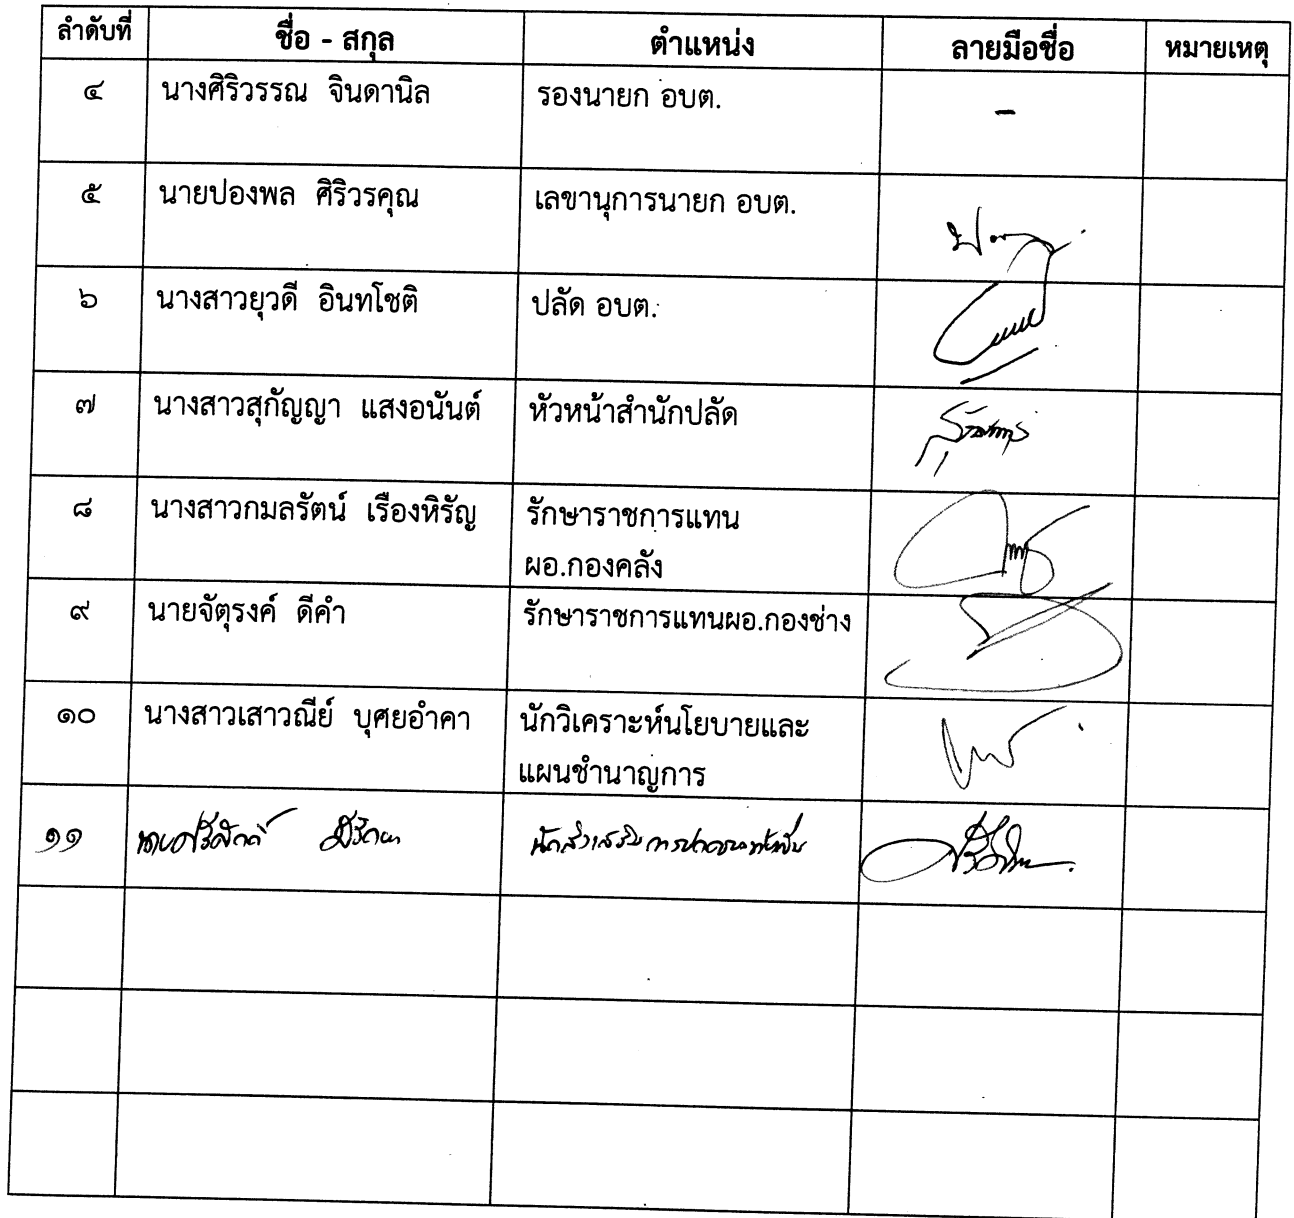 ลำดับที่ ชื่อ - สกุล ตำแหน่ง ลายมือชื่อ หมายเหตุ
๔ นางศิริวรรณ จินดานิล รองนายก อบต. -
๕ นายปองพล ศิริวรคุณ เลขานุการนายก อบต.
๖ นางสาวยุวดี อินทโชติ ปลัด อบต.
๗ นางสาวสุกัญญา แสงอนันต์ หัวหน้าสำนักปลัด
๘ นางสาวกมลรัตน์ เรืองหิรัญ รักษาราชการแทน
ผอ.กองคลัง
๙ นายจัตุรงค์ ดีคำ รักษาราชการแทนผอ.กองช่าง
๑๐ นางสาวเสาวณีย์ บุศยอำคา นักวิเคราะห์นโยบายและ
แผนชำนาญการ
๑๑